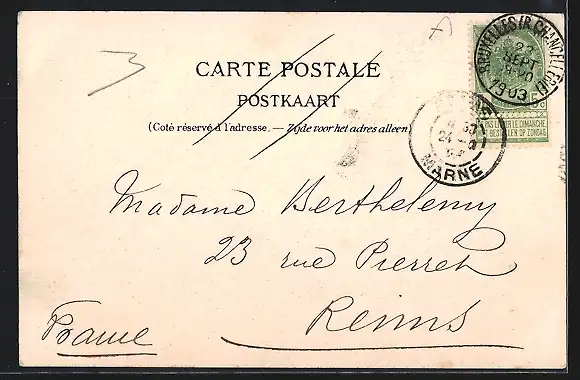 A
BRUXELLES (R. CHANCELLERIE)
23
SEPT
1903
5c
NE PAS LIVRER LE DIMANCHE
NIET BESTELLEN OP ZONDAG
3
CARTE POSTALE
POSTKAART
(Coté réservé à l'adresse. — Zijde voor het adres alleen)
24
MARNE
Madame Berthelemy
23 rue Pierret
Reims
France